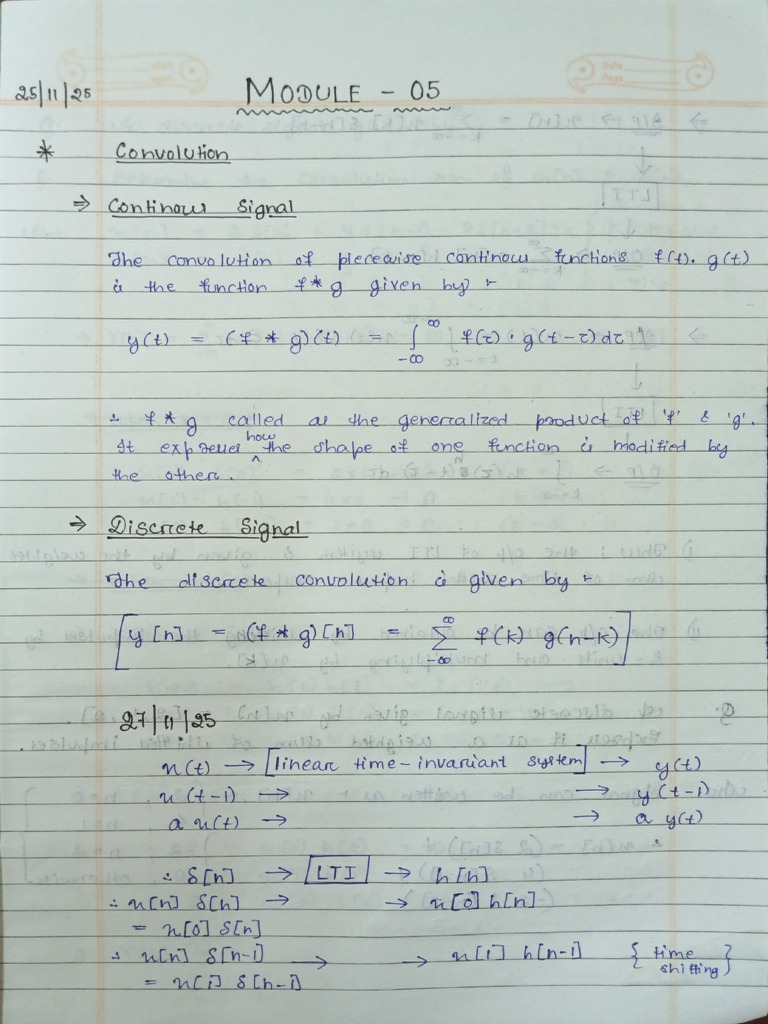 25/11/25 MODULE - 05
* Convolution
⇒ Continous Signal
The convolution of piecewise continous functions f(t), g(t)
is the function f * g given by :-
y(t) = (f * g)(t) = ∫_{-∞}^{∞} f(τ) · g(t-τ) dτ
∴ f * g called as the generralized product of 'f' & 'g'.
It expresses how the shape of one function is modified by
the other.
⇒ Discrete Signal
The discrete convolution is given by :-
[ y[n] = (f * g)[n] = ∑_{-∞}^{∞} f(k) g(n-k) ]
27/11/25
x(t) → [linear time-invariant system] → y(t)
x(t-1) → → y(t-1)
a x(t) → → a y(t)
∴ δ[n] → [LTI] → h[n]
∴ x[n] δ[n] → → x[0] h[n]
= x[0] δ[n]
∴ x[n] δ[n-1] → → x[1] h[n-1] { time shifting }
= x[1] δ[n-1]